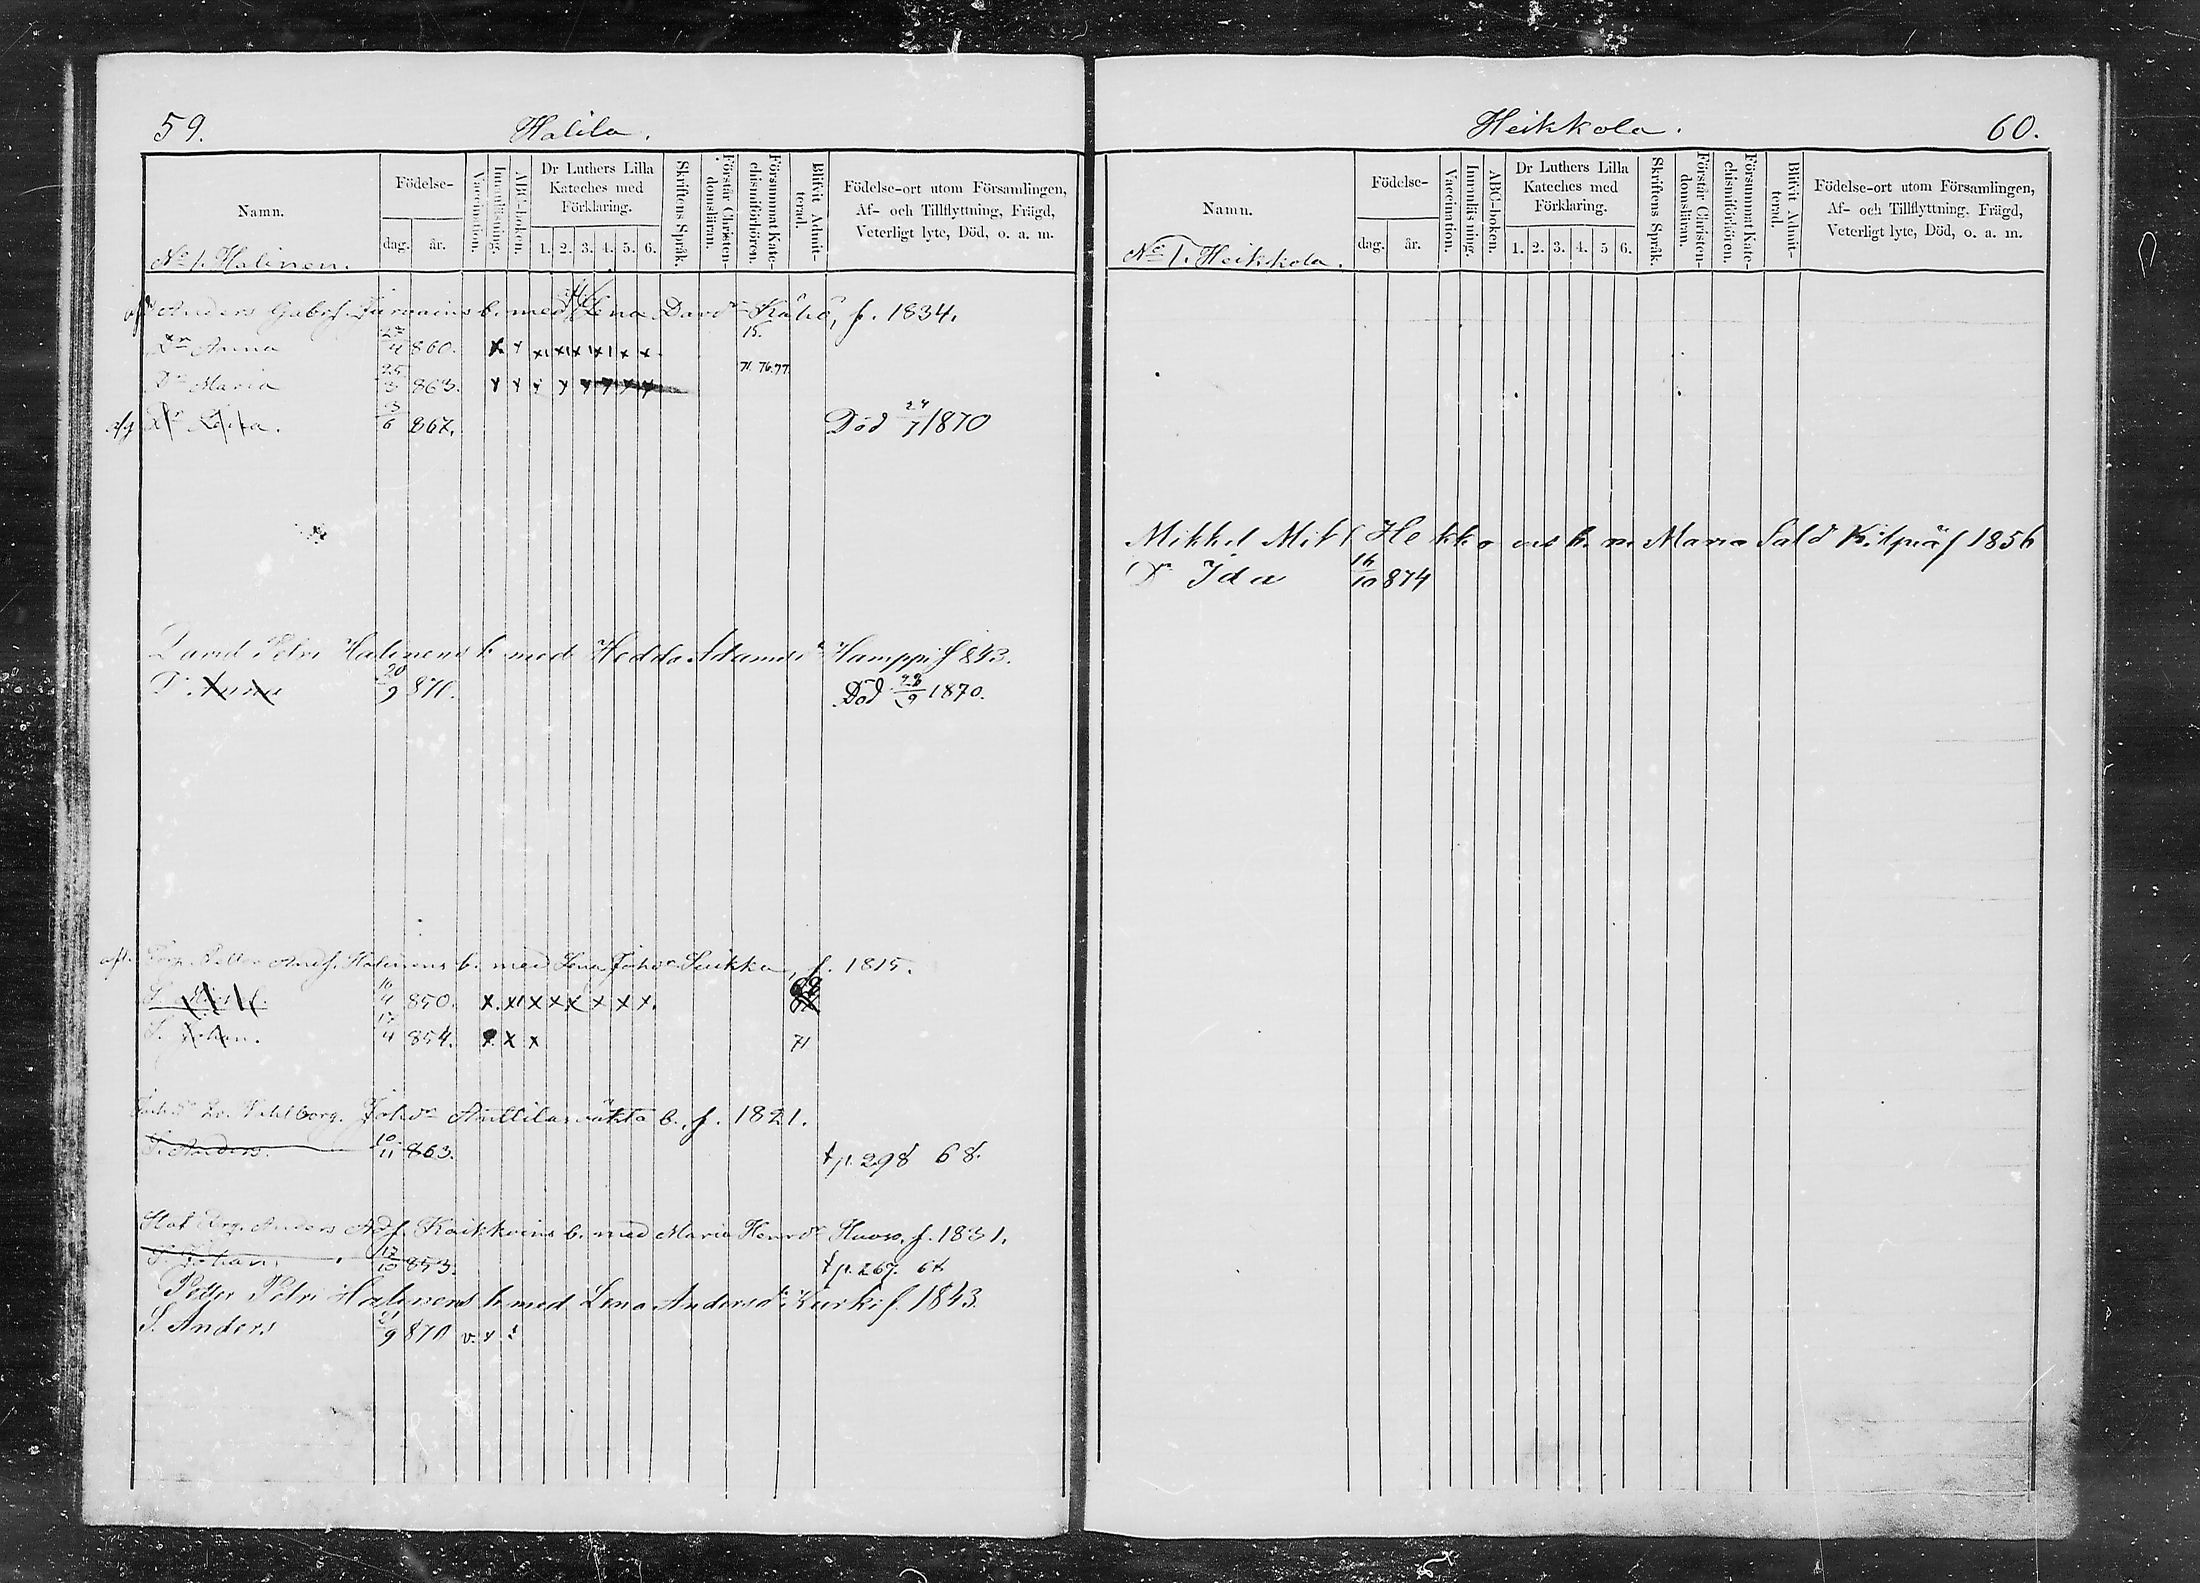 59. Halila.
Namn. Födelse- dag. år. Vaccination. Innanläsning. ABC-boken. Dr Luthers Lilla Kateches med Förklaring. 1. 2. 3. 4. 5. 6. Skriftens Språk. Förstår Christendomsläran. Försummat Katechismiförhören. Blifvit Admitterad. Födelse-ort utom Församlingen, Af- och Tillflyttning, Frägd, Veterligt lyte, Död, o. a. m.
No 1. Halinen.
Anders Gabrs. b. med Lena Davdr f. 1834.
Dr Anna 4 860. x x x x x x x x 15.
Dr Maria 25/3 863. x x x x x x x x 71 76.77
Dr 3/6 867. Död 24/7 1870
David Petri Halinens b med Hedda Adamsdr Hamppi f 843.
Dr Anna 20/9 870. Död 22/9 1870.
Petter Andrs. Halinens b. med Lena Johdr f. 1815.
S. 16/4 850. x x x x x x x x
S. Johan. 17/4 854. x x 71
Johdr Anttilas oäkta b. f. 1821.
S. Anders. 10/11 863. tp. 298 68.
Anders Adf. Kaikkoins b. med Maria Henrdr f. 1831.
S. Johan. 17/10 853. tp. 267. 68
Petter Petri Halinens b med Lena Andersdr Kurki f. 1843
S. Anders 21/9 870 v. x
Heikkola. 60.
Namn. Födelse- dag. år. Vaccination. Innanläsning. ABC-boken. Dr Luthers Lilla Kateches med Förklaring. 1. 2. 3. 4. 5 6. Skriftens Språk. Förstår Christendomsläran. Försummat Katechismiförhören. Blifvit Admitterad. Födelse-ort utom Församlingen, Af- och Tillflyttning, Frägd, Veterligt lyte, Död, o. a. m.
No 1. Heikkola.
Mikkel Mikl b. m Maria f 1856
Dr Ida 16/10 874